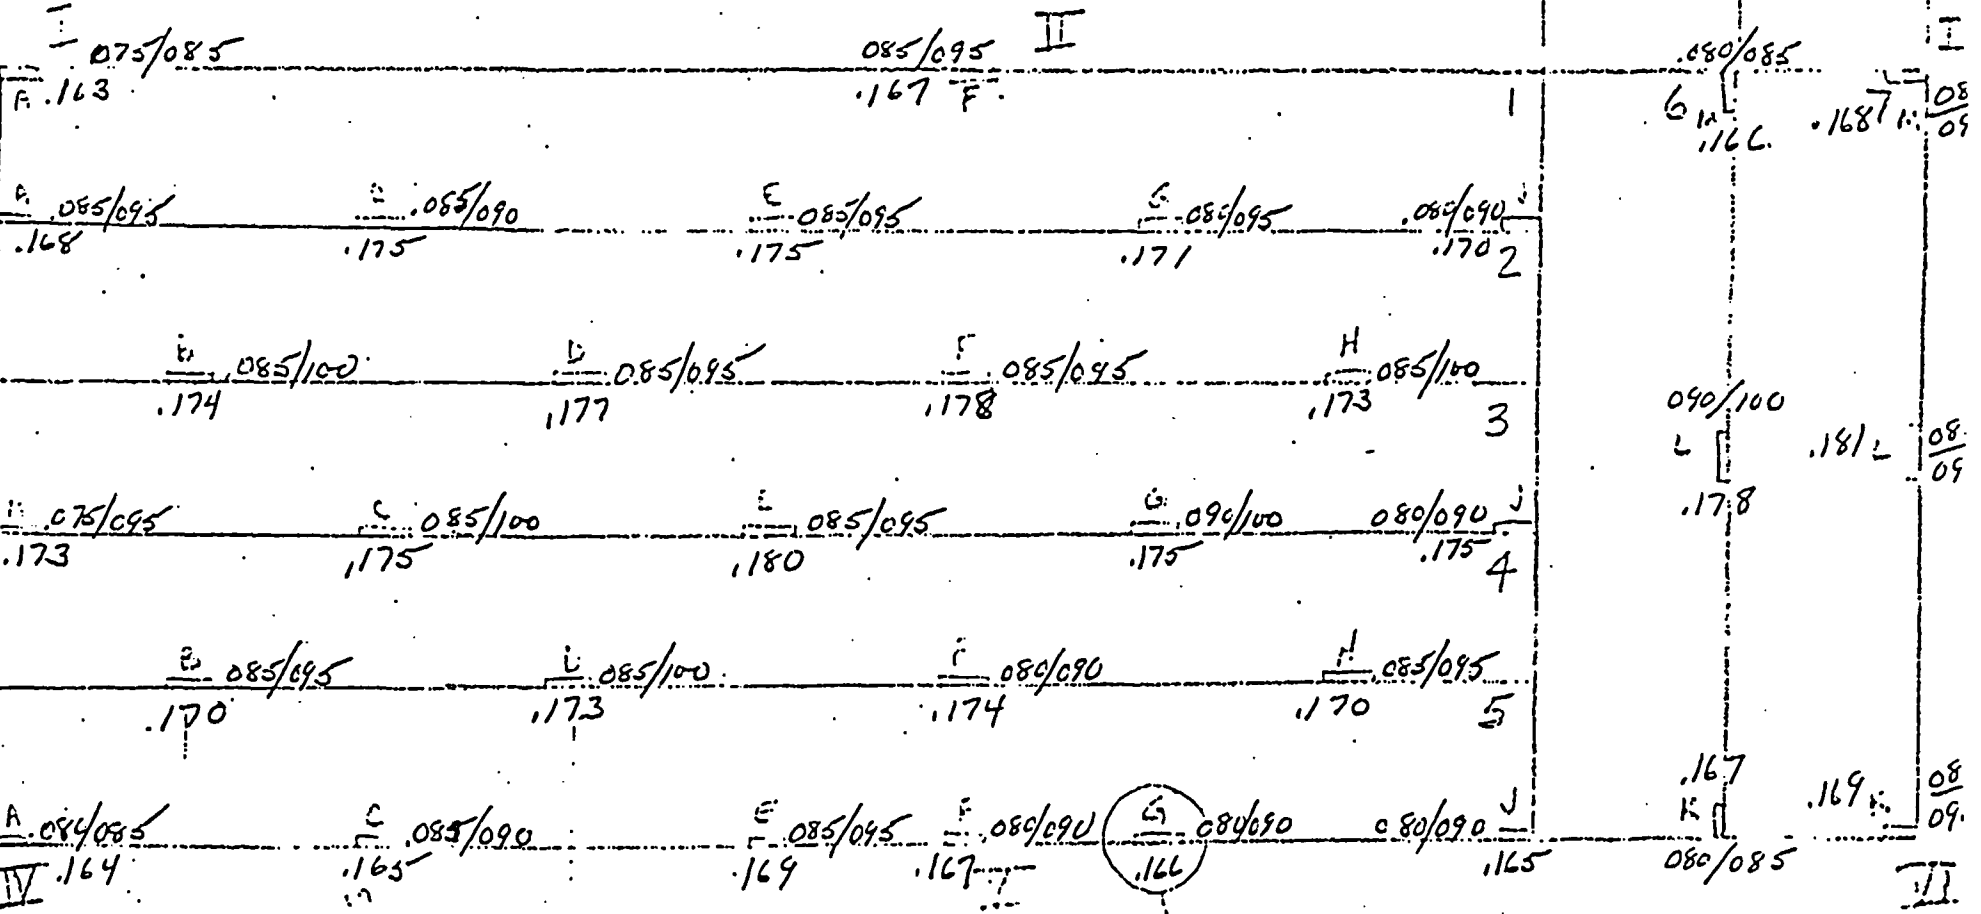 I II I
075/085 085/095 .080/085
A .163 .167 F 1 6 K .166 .168 7 K 08
09
A .085/095 .085/090 E 085/095 G 080/095 .080/090 J
.168 .175 .175 .171 .170 2
B 085/100 D 085/095 F 085/095 H 085/100
.174 .177 .178 .173 3
090/100
L .178 .181 L 08
09
075/095 C 085/100 E 085/095 G 090/100 080/090 J
.173 .175 .180 .175 .175 4
B 085/095 D 085/100 F 080/090 H 085/095
.170 .173 .174 .170 5
.167
K .169 K 08
09
A 080/085 C .085/090 E 085/095 F 080/090 G 080/090 080/090 J
IV .164 .165 .169 .167 .166 .165 080/085